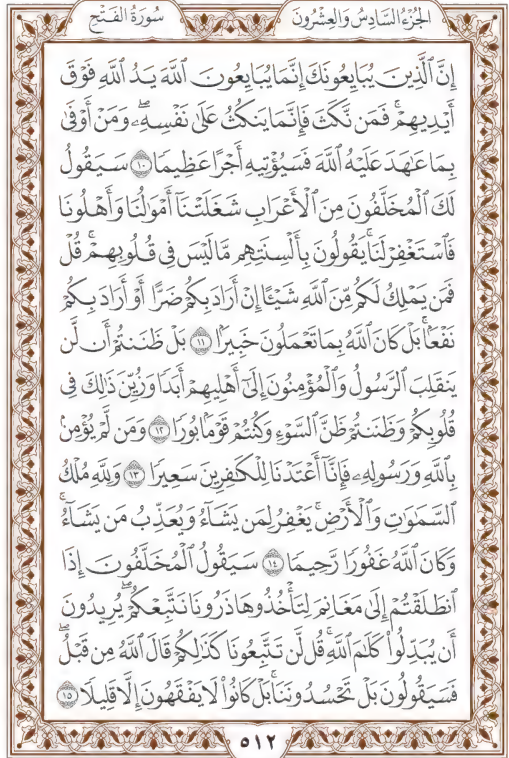 الجُزْءُ السَّادِسُ وَالعِشْرُونَ
سُورَةُ الفَتْحِ
إِنَّ ٱلَّذِينَ يُبَايِعُونَكَ إِنَّمَا يُبَايِعُونَ ٱللَّهَ يَدُ ٱللَّهِ فَوْقَ
أَيْدِيهِمْۚ فَمَن نَّكَثَ فَإِنَّمَا يَنكُثُ عَلَىٰ نَفْسِهِۦۖ وَمَنْ أَوْفَىٰ
بِمَا عَٰهَدَ عَلَيْهُ ٱللَّهَ فَسَيُؤْتِيهِ أَجْرًا عَظِيمًا ١٠ سَيَقُولُ
لَكَ ٱلْمُخَلَّفُونَ مِنَ ٱلْأَعْرَابِ شَغَلَتْنَآ أَمْوَٰلُنَا وَأَهْلُونَا
فَٱسْتَغْفِرْ لَنَاۚ يَقُولُونَ بِأَلْسِنَتِهِم مَّا لَيْسَ فِى قُلُوبِهِمْۚ قُلْ
فَمَن يَمْلِكُ لَكُم مِّنَ ٱللَّهِ شَيْـًٔا إِنْ أَرَادَ بِكُمْ ضَرًّا أَوْ أَرَادَ بِكُمْ
نَفْعًۢاۚ بَلْ كَانَ ٱللَّهُ بِمَا تَعْمَلُونَ خَبِيرًۢا ١١ بَلْ ظَنَنتُمْ أَن لَّن
يَنقَلِبَ ٱلرَّسُولُ وَٱلْمُؤْمِنُونَ إِلَىٰٓ أَهْلِيهِمْ أَبَدًا وَزُيِّنَ ذَٰلِكَ فِى
قُلُوبِكُمْ وَظَنَنتُمْ ظَنَّ ٱلسَّوْءِ وَكُنتُمْ قَوْمًۢا بُورًا ١٢ وَمَن لَّمْ يُؤْمِنۢ
بِٱللَّهِ وَرَسُولِهِۦ فَإِنَّآ أَعْتَدْنَا لِلْكَٰفِرِينَ سَعِيرًا ١٣ وَلِلَّهِ مُلْكُ
ٱلسَّمَٰوَٰتِ وَٱلْأَرْضِۚ يَغْفِرُ لِمَن يَشَآءُ وَيُعَذِّبُ مَن يَشَآءُۚ
وَكَانَ ٱللَّهُ غَفُورًا رَّحِيمًا ١٤ سَيَقُولُ ٱلْمُخَلَّفُونَ إِذَا
ٱنطَلَقْتُمْ إِلَىٰ مَغَانِمَ لِتَأْخُذُوهَا ذَرُونَا نَتَّبِعْكُمْۖ يُرِيدُونَ
أَن يُبَدِّلُوا۟ كَلَٰمَ ٱللَّهِۚ قُل لَّن تَتَّبِعُونَا كَذَٰلِكُمْ قَالَ ٱللَّهُ مِن قَبْلُۖ
فَسَيَقُولُونَ بَلْ تَحْسُدُونَنَاۚ بَلْ كَانُوا۟ لَا يَفْقَهُونَ إِلَّا قَلِيلًا ١٥
٥١٢